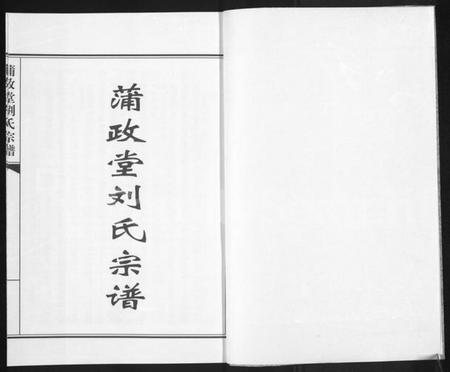 蒲政堂刘氏宗谱
蒲政堂刘氏宗谱